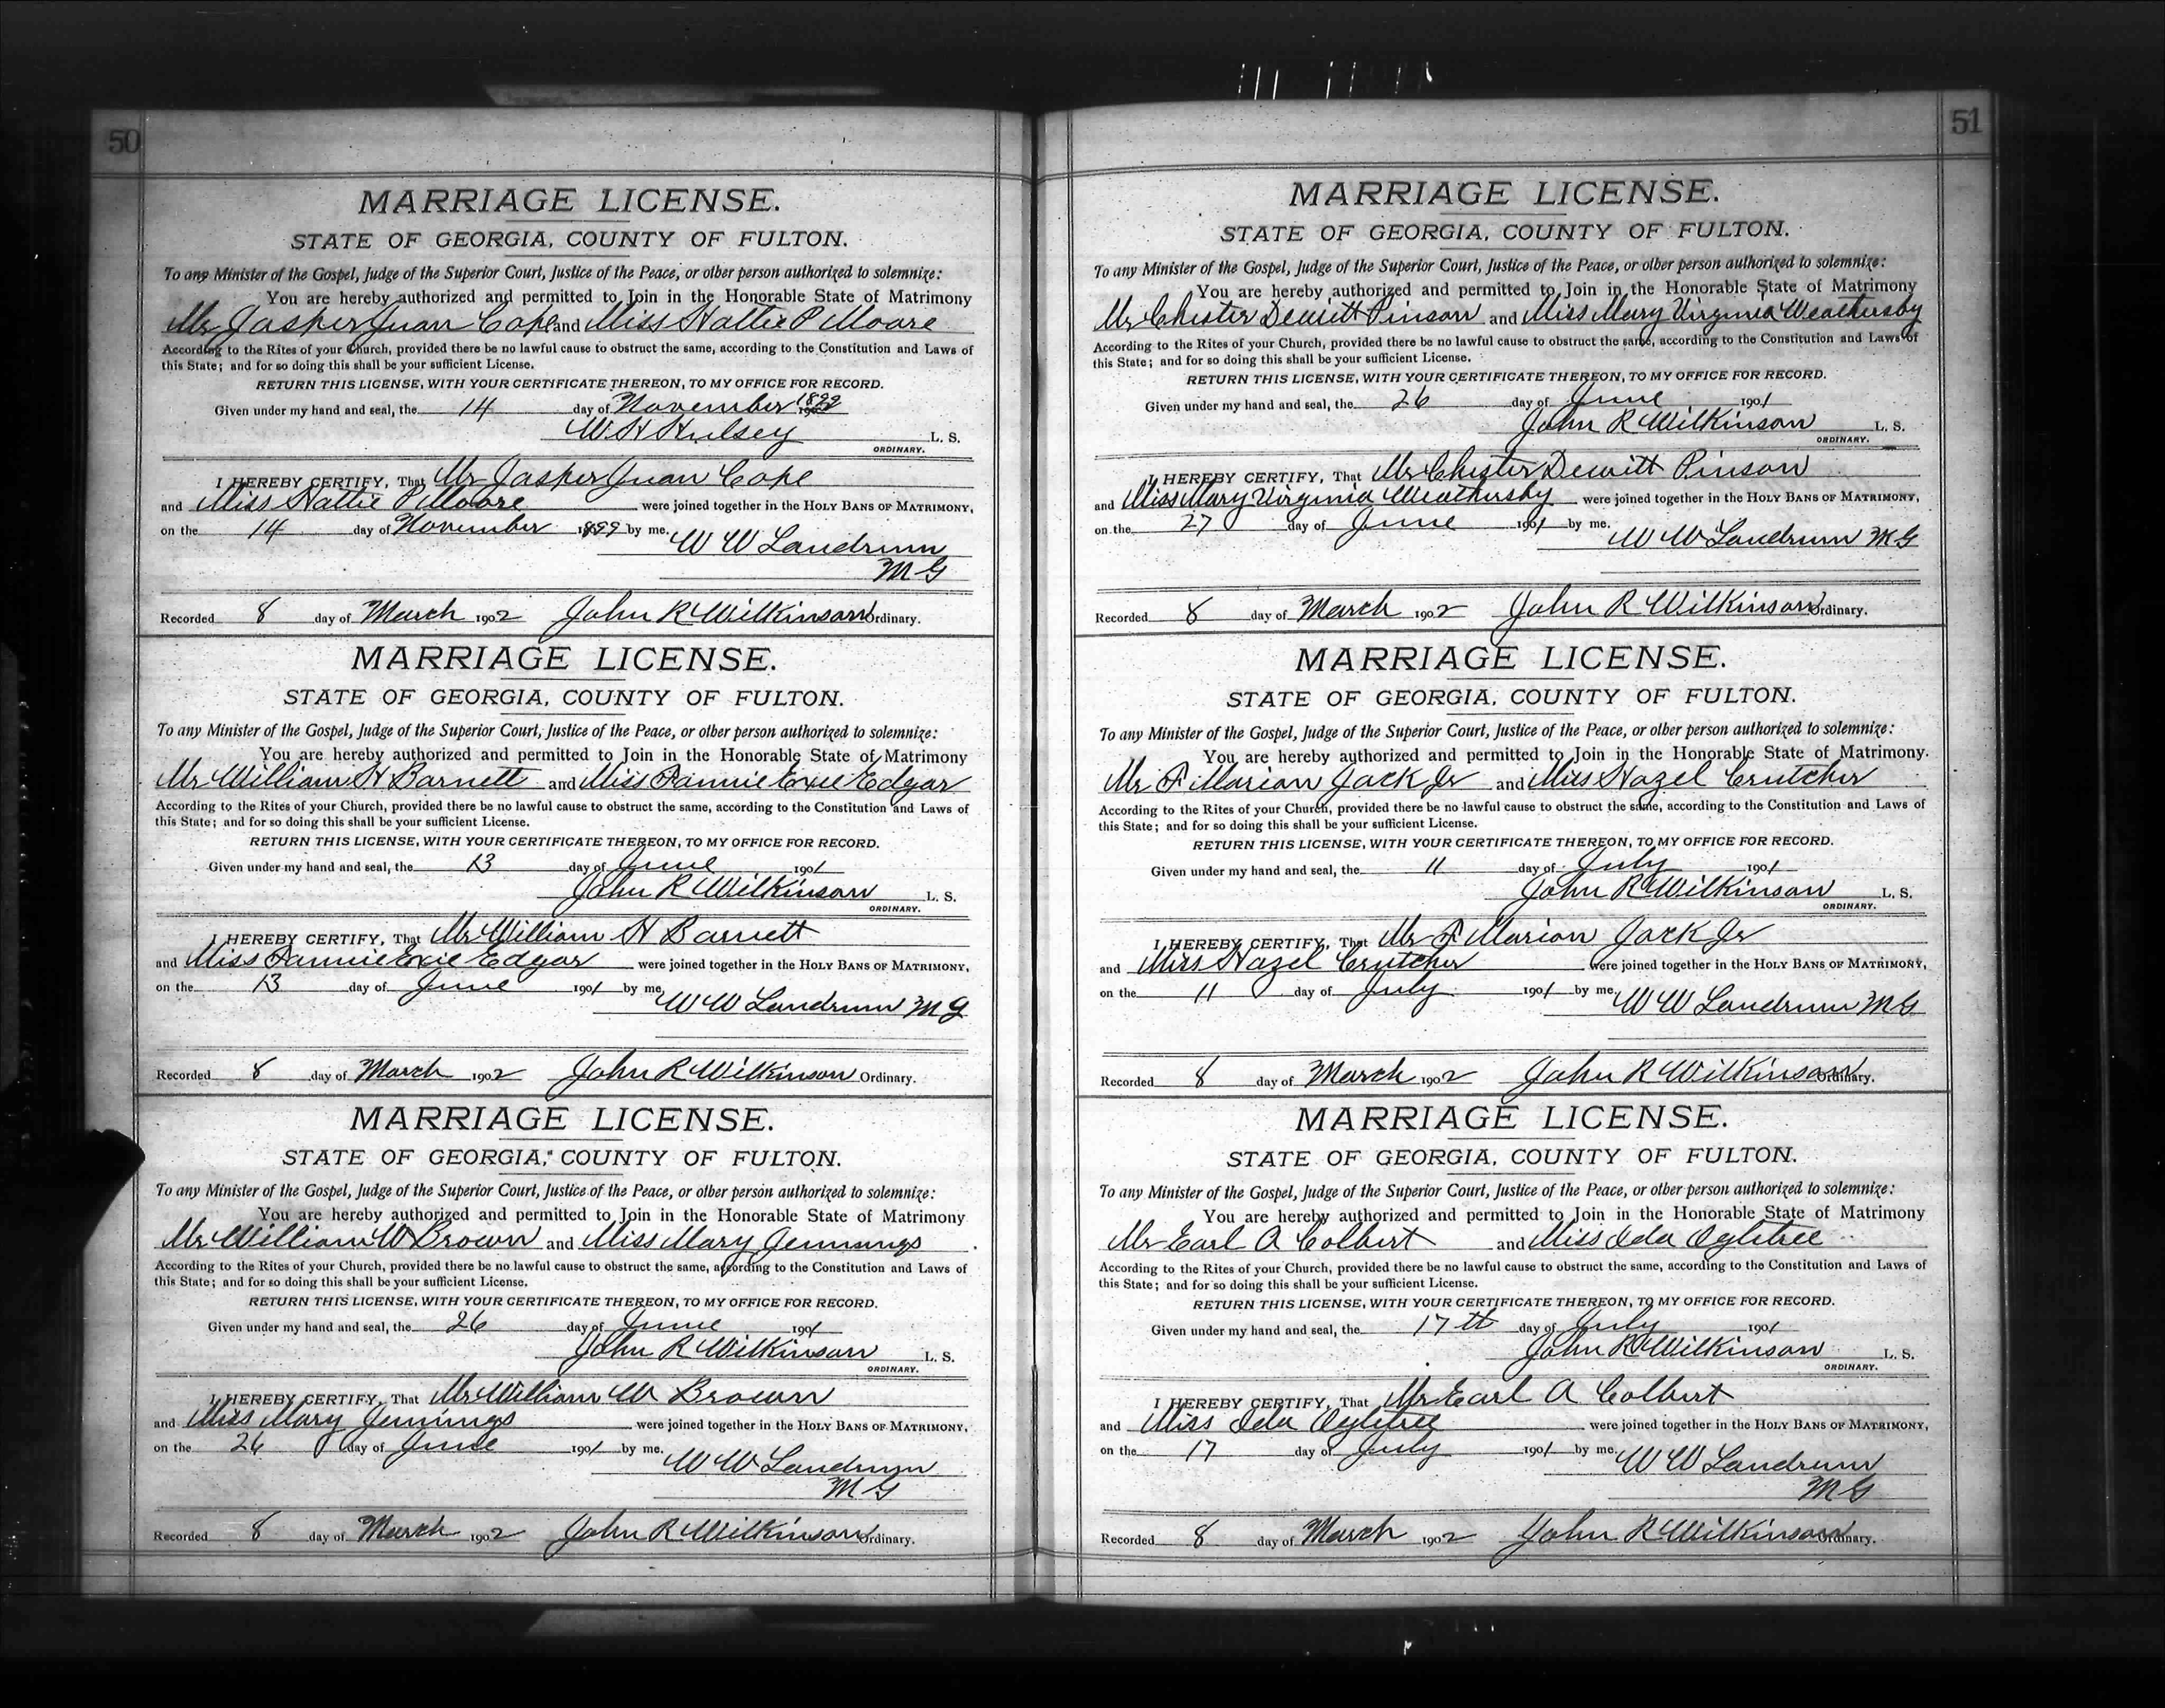 50
MARRIAGE LICENSE.
STATE OF GEORGIA, COUNTY OF FULTON.
To any Minister of the Gospel, Judge of the Superior Court, Justice of the Peace, or other person authorized to solemnize:
You are hereby authorized and permitted to Join in the Honorable State of Matrimony
Mr Jasper Juan Cope and Miss Hattie P Moore
According to the Rites of your Church, provided there be no lawful cause to obstruct the same, according to the Constitution and Laws of
this State; and for so doing this shall be your sufficient License.
RETURN THIS LICENSE, WITH YOUR CERTIFICATE THEREON, TO MY OFFICE FOR RECORD.
Given under my hand and seal, the 14 day of November 1899
W H Hulsey L. S.
ORDINARY.
I HEREBY CERTIFY, That Mr Jasper Juan Cope
and Miss Hattie P Moore were joined together in the HOLY BANS OF MATRIMONY,
on the 14 day of November 1899 by me.
W W Landrum
M G
Recorded 8 day of March 1902 John R Wilkinson Ordinary.
MARRIAGE LICENSE.
STATE OF GEORGIA, COUNTY OF FULTON.
To any Minister of the Gospel, Judge of the Superior Court, Justice of the Peace, or other person authorized to solemnize:
You are hereby authorized and permitted to Join in the Honorable State of Matrimony
Mr William H Barnett and Miss Fannie Exie Edgar
According to the Rites of your Church, provided there be no lawful cause to obstruct the same, according to the Constitution and Laws of
this State; and for so doing this shall be your sufficient License.
RETURN THIS LICENSE, WITH YOUR CERTIFICATE THEREON, TO MY OFFICE FOR RECORD.
Given under my hand and seal, the 13 day of June 1901
John R Wilkinson L. S.
ORDINARY.
I HEREBY CERTIFY, That Mr William H Barnett
and Miss Fannie Exie Edgar were joined together in the HOLY BANS OF MATRIMONY,
on the 13 day of June 1901 by me
W W Landrum M G
Recorded 8 day of March 1902 John R Wilkinson Ordinary.
MARRIAGE LICENSE.
STATE OF GEORGIA, COUNTY OF FULTON.
To any Minister of the Gospel, Judge of the Superior Court, Justice of the Peace, or other person authorized to solemnize:
You are hereby authorized and permitted to Join in the Honorable State of Matrimony
Mr William W Brown and Miss Mary Jennings
According to the Rites of your Church, provided there be no lawful cause to obstruct the same, according to the Constitution and Laws of
this State; and for so doing this shall be your sufficient License.
RETURN THIS LICENSE, WITH YOUR CERTIFICATE THEREON, TO MY OFFICE FOR RECORD.
Given under my hand and seal, the 26 day of June 1901
John R Wilkinson L. S.
ORDINARY.
I HEREBY CERTIFY, That Mr William W Brown
and Miss Mary Jennings were joined together in the HOLY BANS OF MATRIMONY,
on the 26 day of June 1901 by me.
W W Landrum
M G
Recorded 8 day of March 1902 John R Wilkinson Ordinary.
51
MARRIAGE LICENSE.
STATE OF GEORGIA, COUNTY OF FULTON.
To any Minister of the Gospel, Judge of the Superior Court, Justice of the Peace, or other person authorized to solemnize:
You are hereby authorized and permitted to Join in the Honorable State of Matrimony
Mr Chester Dewitt Pinson and Miss Mary Virginia Weathersby
According to the Rites of your Church, provided there be no lawful cause to obstruct the same, according to the Constitution and Laws of
this State; and for so doing this shall be your sufficient License.
RETURN THIS LICENSE, WITH YOUR CERTIFICATE THEREON, TO MY OFFICE FOR RECORD.
Given under my hand and seal, the 26 day of June 1901
John R Wilkinson L. S.
ORDINARY.
I HEREBY CERTIFY, That Mr Chester Dewitt Pinson
and Miss Mary Virginia Weathersby were joined together in the HOLY BANS OF MATRIMONY,
on the 27 day of June 1901 by me.
W W Landrum M G
Recorded 8 day of March 1902 John R Wilkinson Ordinary.
MARRIAGE LICENSE.
STATE OF GEORGIA, COUNTY OF FULTON.
To any Minister of the Gospel, Judge of the Superior Court, Justice of the Peace, or other person authorized to solemnize:
You are hereby authorized and permitted to Join in the Honorable State of Matrimony.
Mr F Marion Jack Jr and Miss Hazel Crutcher
According to the Rites of your Church, provided there be no lawful cause to obstruct the same, according to the Constitution and Laws of
this State; and for so doing this shall be your sufficient License.
RETURN THIS LICENSE, WITH YOUR CERTIFICATE THEREON, TO MY OFFICE FOR RECORD.
Given under my hand and seal, the 11 day of July 1901
John R Wilkinson L. S.
ORDINARY.
I HEREBY CERTIFY, That Mr F Marion Jack Jr
and Miss Hazel Crutcher were joined together in the HOLY BANS OF MATRIMONY,
on the 11 day of July 1901 by me.
W W Landrum M G
Recorded 8 day of March 1902 John R Wilkinson Ordinary.
MARRIAGE LICENSE.
STATE OF GEORGIA, COUNTY OF FULTON.
To any Minister of the Gospel, Judge of the Superior Court, Justice of the Peace, or other person authorized to solemnize:
You are hereby authorized and permitted to Join in the Honorable State of Matrimony
Mr Earl A Colbert and Miss Ida Ogletree
According to the Rites of your Church, provided there be no lawful cause to obstruct the same, according to the Constitution and Laws of
this State; and for so doing this shall be your sufficient License.
RETURN THIS LICENSE, WITH YOUR CERTIFICATE THEREON, TO MY OFFICE FOR RECORD.
Given under my hand and seal, the 17th day of July 1901
John R Wilkinson L. S.
ORDINARY.
I HEREBY CERTIFY, That Mr Earl A Colbert
and Miss Ida Ogletree were joined together in the HOLY BANS OF MATRIMONY,
on the 17 day of July 1901 by me.
W W Landrum
M G
Recorded 8 day of March 1902 John R Wilkinson Ordinary.